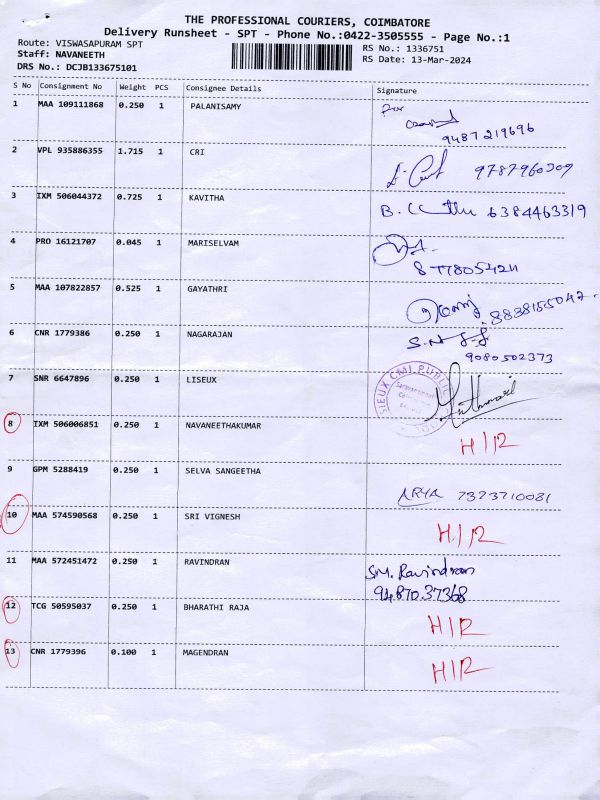 THE PROFESSIONAL COURIERS, COIMBATORE
Delivery Runsheet - SPT - Phone No.:0422-3505555 - Page No.:1
Route: VISWASAPURAM SPT RS No.: 1336751
Staff: NAVANEETH RS Date: 13-Mar-2024
DRS No.: DCJB133675101
S No Consignment No Weight PCS Consignee Details Signature
1 MAA 109111868 0.250 1 PALANISAMY
for
9487219696
2 VPL 935886355 1.715 1 CRI 9787960309
3 IXM 506044372 0.725 1 KAVITHA B. 6384463319
4 PRO 16121707 0.045 1 MARISELVAM
8778054211
5 MAA 107822857 0.525 1 GAYATHRI 8838155047
6 CNR 1779386 0.250 1 NAGARAJAN S.N
9080502373
7 SNR 6647896 0.250 1 LISEUX
SIEUX CMI PUBLIC
8 IXM 506006851 0.250 1 NAVANEETHAKUMAR H/R
9 GPM 5288419 0.250 1 SELVA SANGEETHA ARYA 7373710081
10 MAA 574590568 0.250 1 SRI VIGNESH H/R
11 MAA 572451472 0.250 1 RAVINDRAN SM. Ravindran
94870.37368
12 TCG 50595037 0.250 1 BHARATHI RAJA H/R
13 CNR 1779396 0.100 1 MAGENDRAN H/R